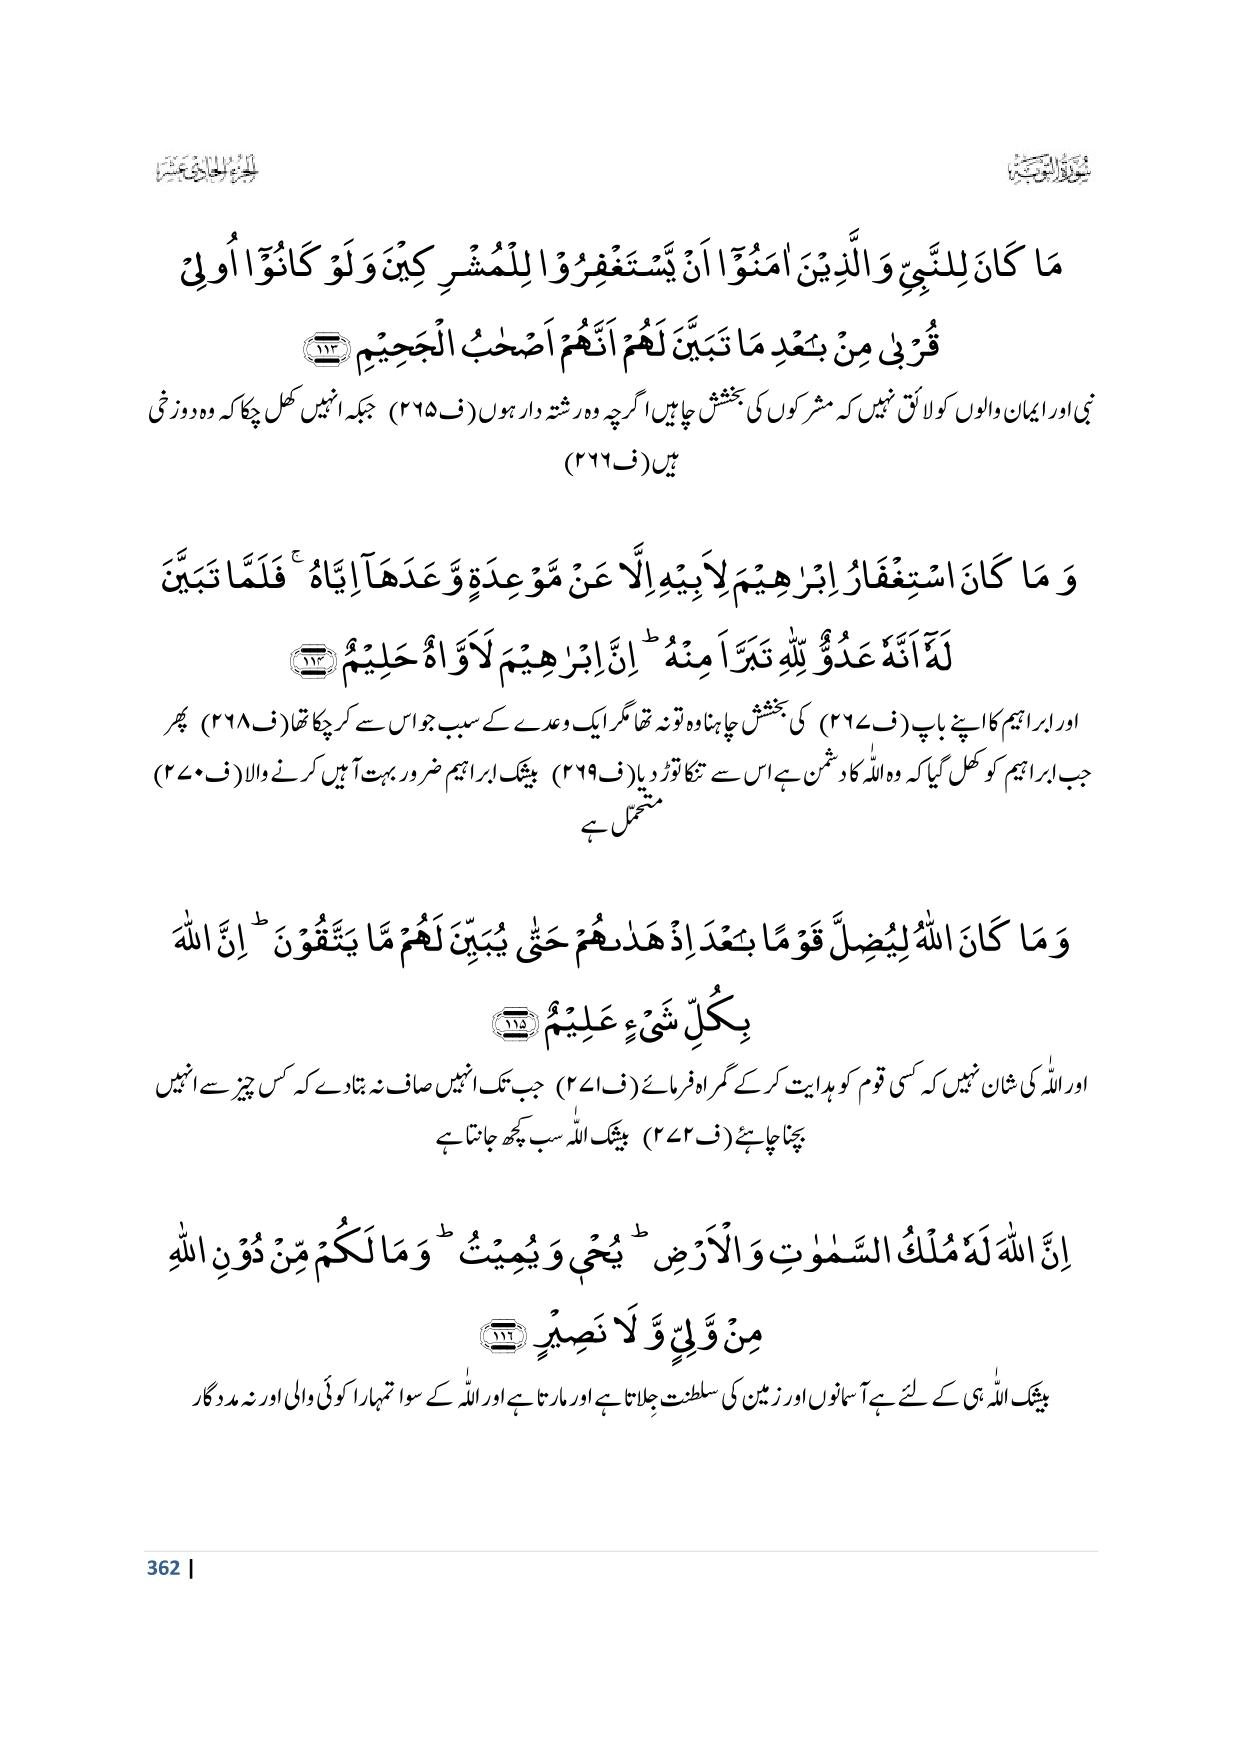 سُوْرَةُ التَّوْبَةِ
الجزء الحادی عشر
مَا كَانَ لِلنَّبِیِّ وَ الَّذِیْنَ اٰمَنُوْۤا اَنْ یَّسْتَغْفِرُوْا لِلْمُشْرِكِیْنَ وَ لَوْ كَانُوْۤا اُولِیْ
قُرْبٰى مِنْۢ بَعْدِ مَا تَبَیَّنَ لَهُمْ اَنَّهُمْ اَصْحٰبُ الْجَحِیْمِ ﴿۱۱۳﴾
نبی اور ایمان والوں کو لائق نہیں کہ مشرکوں کی بخشش چاہیں اگرچہ وہ رشتہ دار ہوں (ف۲۶۵) جبکہ انہیں کھل چکا کہ وہ دوزخی
ہیں (ف۲۶۶)
وَ مَا كَانَ اسْتِغْفَارُ اِبْرٰهِیْمَ لِاَبِیْهِ اِلَّا عَنْ مَّوْعِدَةٍ وَّعَدَهَاۤ اِیَّاهُ ۚ فَلَمَّا تَبَیَّنَ
لَهٗۤ اَنَّهٗ عَدُوٌّ لِّلّٰهِ تَبَرَّاَ مِنْهُ ؕ اِنَّ اِبْرٰهِیْمَ لَاَوَّاهٌ حَلِیْمٌ ﴿۱۱۴﴾
اور ابراہیم کا اپنے باپ (ف۲۶۷) کی بخشش چاہنا وہ تو نہ تھا مگر ایک وعدے کے سبب جو اس سے کرچکا تھا (ف۲۶۸) پھر
جب ابراہیم کو کھل گیا کہ وہ اللّٰہ کا دشمن ہے اس سے تنکا توڑ دیا (ف۲۶۹) بیشک ابراہیم ضرور بہت آہیں کرنے والا (ف۲۷۰)
متحمّل ہے
وَ مَا كَانَ اللّٰهُ لِیُضِلَّ قَوْمًۢا بَعْدَ اِذْ هَدٰىهُمْ حَتّٰى یُبَیِّنَ لَهُمْ مَّا یَتَّقُوْنَ ؕ اِنَّ اللّٰهَ
بِكُلِّ شَیْءٍ عَلِیْمٌ ﴿۱۱۵﴾
اور اللّٰہ کی شان نہیں کہ کسی قوم کو ہدایت کرکے گمراہ فرمائے (ف۲۷۱) جب تک انہیں صاف نہ بتادے کہ کس چیز سے انہیں
بچنا چاہئے (ف۲۷۲) بیشک اللّٰہ سب کچھ جانتا ہے
اِنَّ اللّٰهَ لَهٗ مُلْكُ السَّمٰوٰتِ وَ الْاَرْضِ ؕ یُحْیٖ وَ یُمِیْتُ ؕ وَ مَا لَكُمْ مِّنْ دُوْنِ اللّٰهِ
مِنْ وَّلِیٍّ وَّ لَا نَصِیْرٍ ﴿۱۱۶﴾
بیشک اللّٰہ ہی کے لئے ہے آسمانوں اور زمین کی سلطنت جِلاتا ہے اور مارتا ہے اور اللّٰہ کے سوا تمہارا کوئی والی اور نہ مددگار
362 |